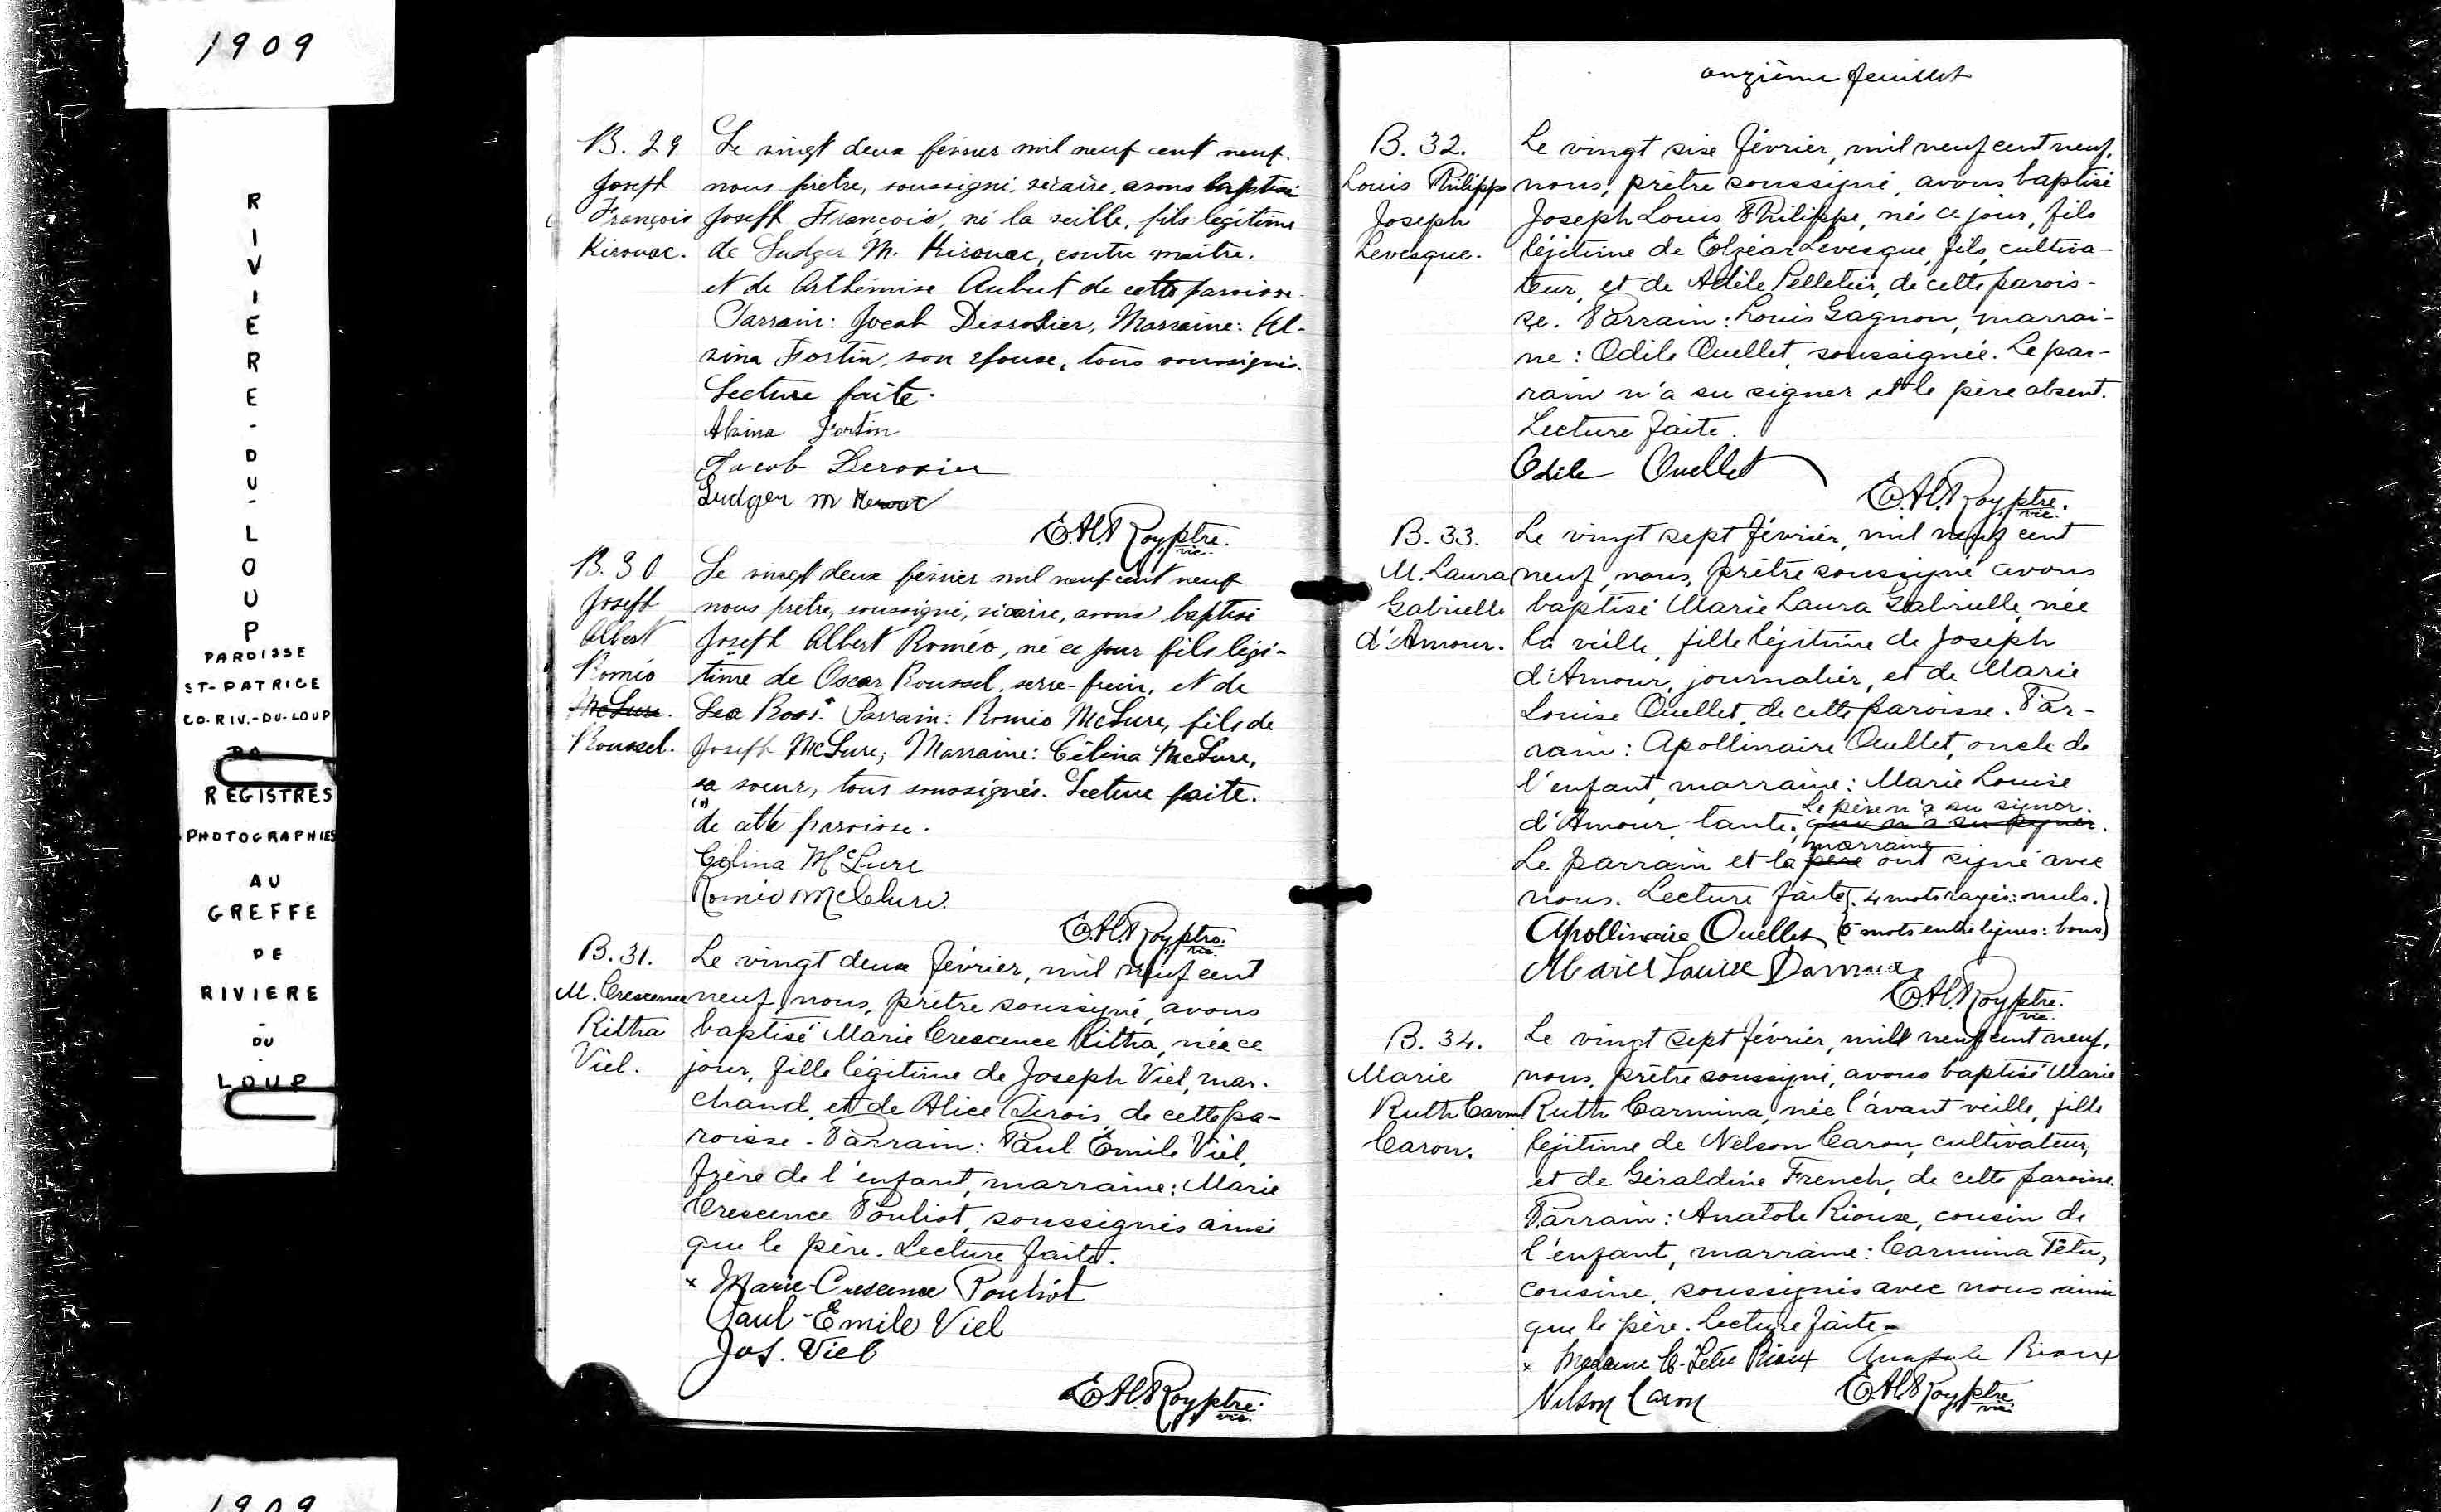 1909
RIVIERE-DU-LOUP
PAROISSE
ST-PATRICE
CO. RIV.-DU-LOUP
REGISTRES
PHOTOGRAPHIES
AU
GREFFE
DE
RIVIERE
-
DU
-
LOUP
1909
B. 29
Joseph
François
Kirouac.
Le vingt deux février mil neuf cent neuf.
nous prêtre, soussigné, vicaire, avons baptisé
Joseph François, né la veille, fils légitime
de Ludger M. Kirouac, contre maître.
et de Arthémise Aubut de cette paroisse.
Parrain: Jocob Desrosier, Marraine: Al-
zina Fortin, son épouse, tous soussignés.
Lecture faite.
Alzina Fortin
Jacob Derosier
Ludger M Kerouac
E.A.P. Roy, ptre.
vic.
B. 30
Joseph
Albert
Roméo
McLure.
Roussel.
Le vingt deux février mil neuf cent neuf
nous prêtre, soussigné, vicaire, avons baptisé
Joseph Albert Roméo, né ce jour fils légi-
time de Oscar Roussel, serre-frein, et de
Lea Ross. Parrain: Romeo McLure, fils de
Joseph McLure; Marraine: Célina McLure,
sa soeur, tous soussignés. Lecture faite.
de cette paroisse.
Célina McLure
Romeo McClure.
E.A.P. Roy ptre.
vic.
B. 31.
M. Crescence
Ritha
Viel.
Le vingt deux février, mil neuf cent
neuf, nous, prêtre soussigné, avons
baptisé Marie Crescence Ritha, née ce
jour, fille légitime de Joseph Viel, mar-
chand, et de Alice Sirois, de cette pa-
roisse. Parrain: Paul Émile Viel,
frère de l'enfant, marraine: Marie
Crescence Pouliot, soussignés ainsi
que le père. Lecture faite.
x Marie-Crescence Pouliot
Paul-Emile Viel
Jos. Viel
E.A.P. Roy ptre.
vic.
onzième feuillet
B. 32.
Louis Philippe
Joseph
Levesque.
Le vingt sixe février, mil neuf cent neuf,
nous, prêtre soussigné, avons baptisé
Joseph Louis Philippe, né ce jour, fils
légitime de Elzéar Levesque, fils, cultiva-
teur, et de Adèle Pelletier, de cette parois-
se. Parrain: Louis Gagnon, marrai-
ne: Odile Ouellet, soussignée. Le par-
rain n'a su signer et le père absent.
Lecture faite.
Odile Ouellet
E.A.P. Roy, ptre.
vic.
B. 33.
M. Laura
Gabrielle
d'Amour.
Le vingt sept février, mil neuf cent
neuf, nous, prêtre soussigné avons
baptisé Marie Laura Gabrielle, née
la veille, fille légitime de Joseph
d'Amour, journalier, et de Marie
Louise Ouellet, de cette paroisse. Par-
rain: Apollinaire Ouellet, oncle de
l'enfant, marraine: Marie Louise
Le père n'a su signer.
d'Amour, tante. qui n'a su signer.
marraine
Le parrain et la père ont signé avec
nous. Lecture faite (. 4 mots rayés: nuls.)
Apollinaire Ouellet (6 mots entre lignes: bons)
Marie Louise Damour
E.A.P. Roy ptre.
vic.
B. 34.
Marie
Ruth Carm
Caron.
Le vingt sept février, mil neuf cent neuf,
nous, prêtre soussigné, avons baptisé Marie
Ruth Carmina, née l'avant veille, fille
légitime de Nelson Caron, cultivateur,
et de Géraldine French, de cette paroisse.
Parrain: Anatole Rioux, cousin de
l'enfant, marraine: Carmina Têtu,
cousine, soussignés avec nous ainsi
que le père. Lecture faite-
x Madame C-Tetu Rioux Anatole Rioux
Nelson Caron E.A.P. Roy, ptre.
vic.